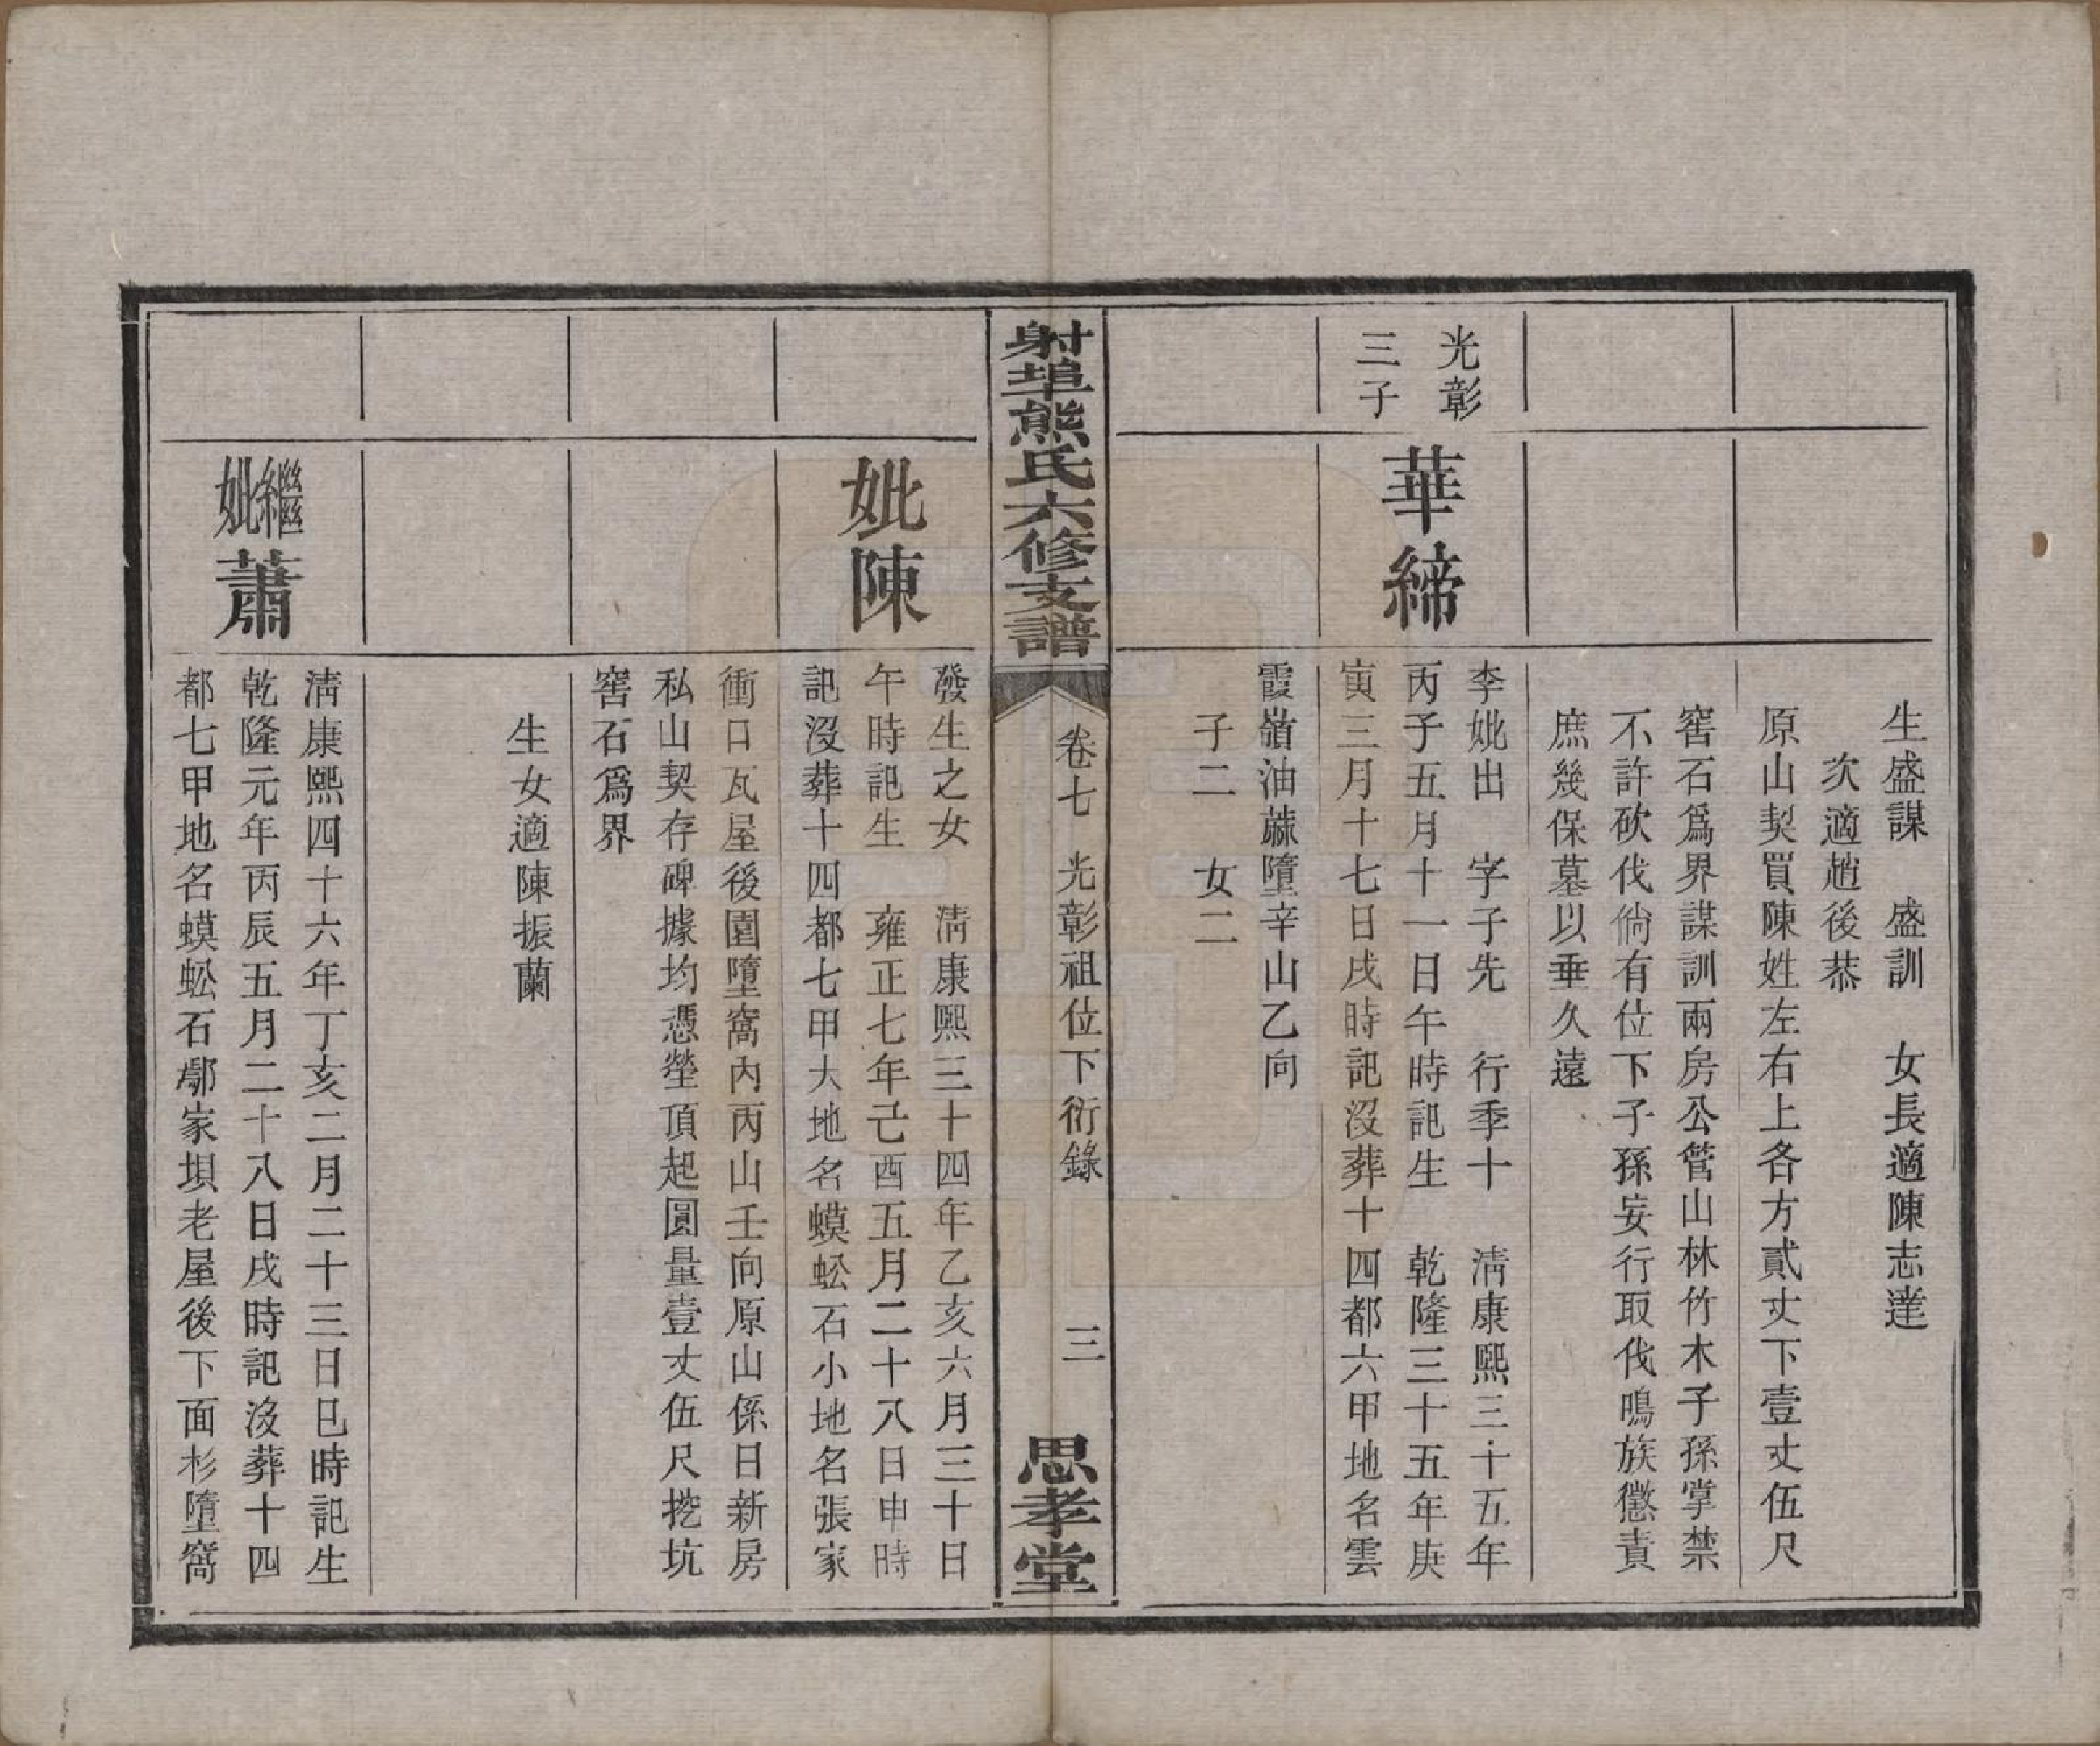 生盛謀　盛訓　女長適陳志達
次適趙後恭
原山契買陳姓左右上各方貳丈下壹丈伍尺
窖石爲界謀訓兩房公管山林竹木子孫掌禁
不許砍伐倘有位下子孫妄行取伐鳴族懲責
庶幾保墓以垂久遠
光彰
三子
華締
李妣出　字子先　行季十　淸康熙三十五年
丙子五月十一日午時記生　乾隆三十五年庚
寅三月十七日戌時記沒葬十四都六甲地名雲
霞嶺油蔴墮辛山乙向
子二　女二
射埠熊氏六修支譜
卷七　光彰祖位下衍錄　三
思孝堂
妣陳
發生之女　淸康熙三十四年乙亥六月三十日
午時記生　雍正七年己酉五月二十八日申時
記沒葬十四都七甲大地名蟆蚣石小地名張家
衝口瓦屋後園墮窩內丙山壬向原山係日新房
私山契存碑據均憑塋頂起圓量壹丈伍尺挖坑
窖石爲界
生女適陳振蘭
繼妣蕭
淸康熙四十六年丁亥二月二十三日巳時記生
乾隆元年丙辰五月二十八日戌時記沒葬十四
都七甲地名蟆蚣石鄢家垻老屋後下面杉墮窩